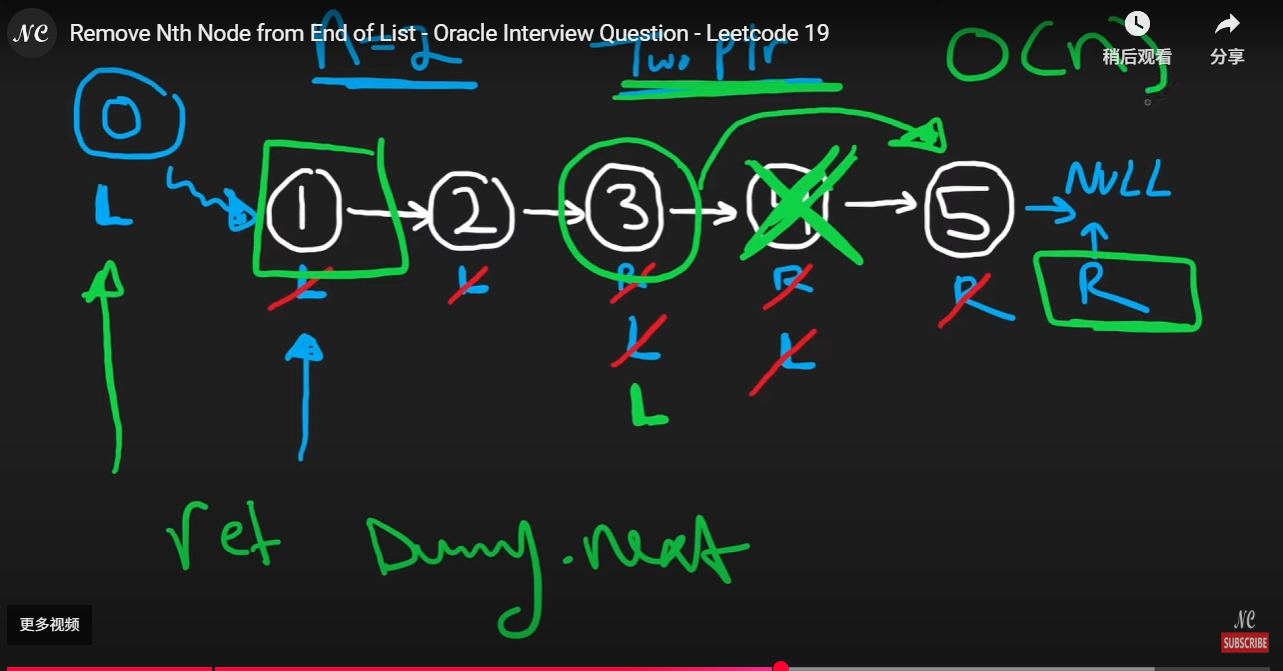 NC Remove Nth Node from End of List - Oracle Interview Question - Leetcode 19
稍后观看 分享
n=2 Two ptr O(n)
0 1 2 3 4 5 NULL
L L L R R R R
L L
L
ret Dummy.next
更多视频
NC
SUBSCRIBE